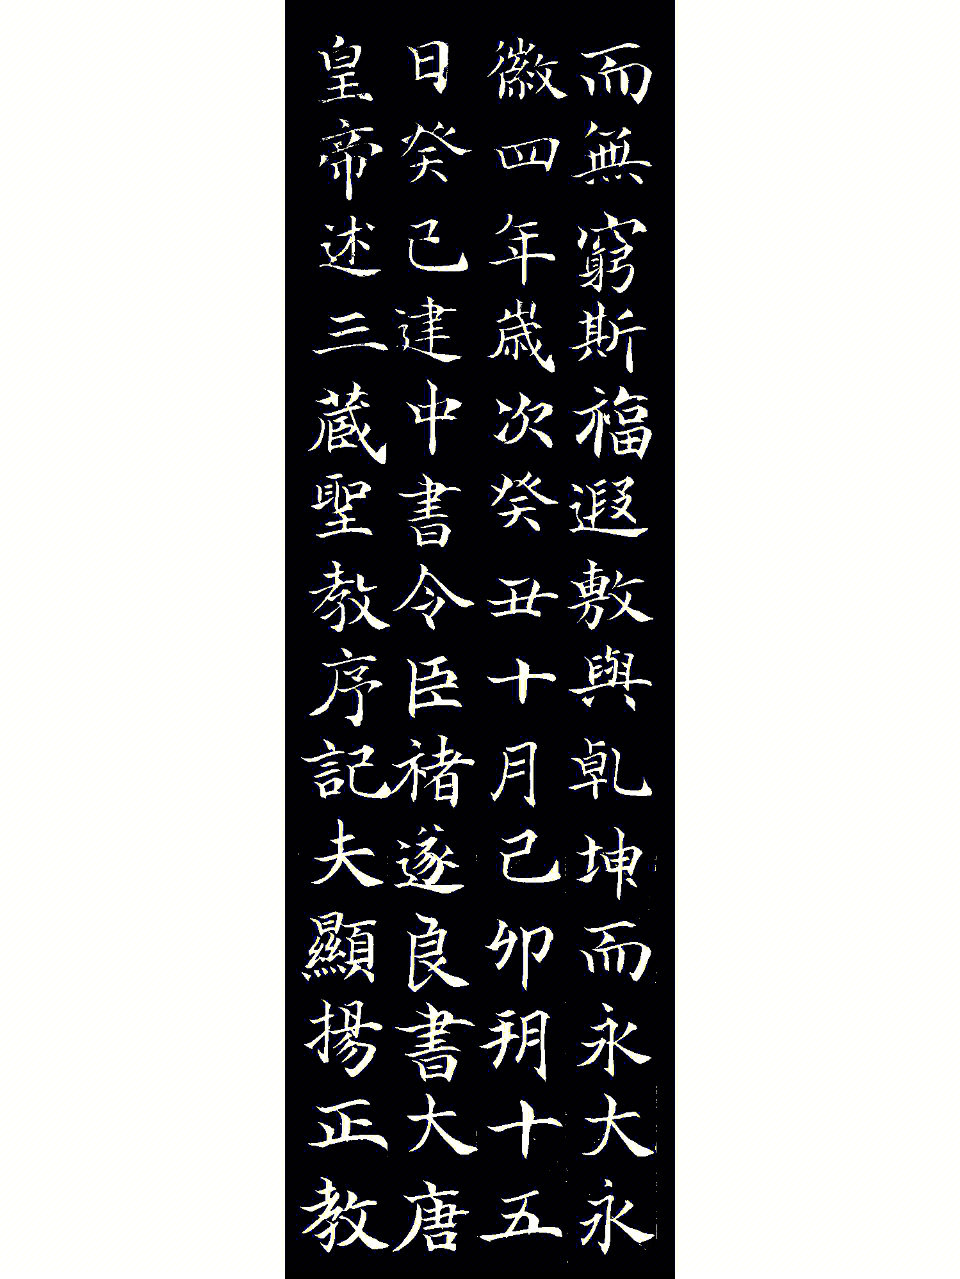 而無窮斯福遐敷與乹坤而永大永
徽四年歲次癸丑十月己卯朔十五
日癸巳建中書令臣褚遂良書大唐
皇帝述三藏聖教序記夫顯揚正教